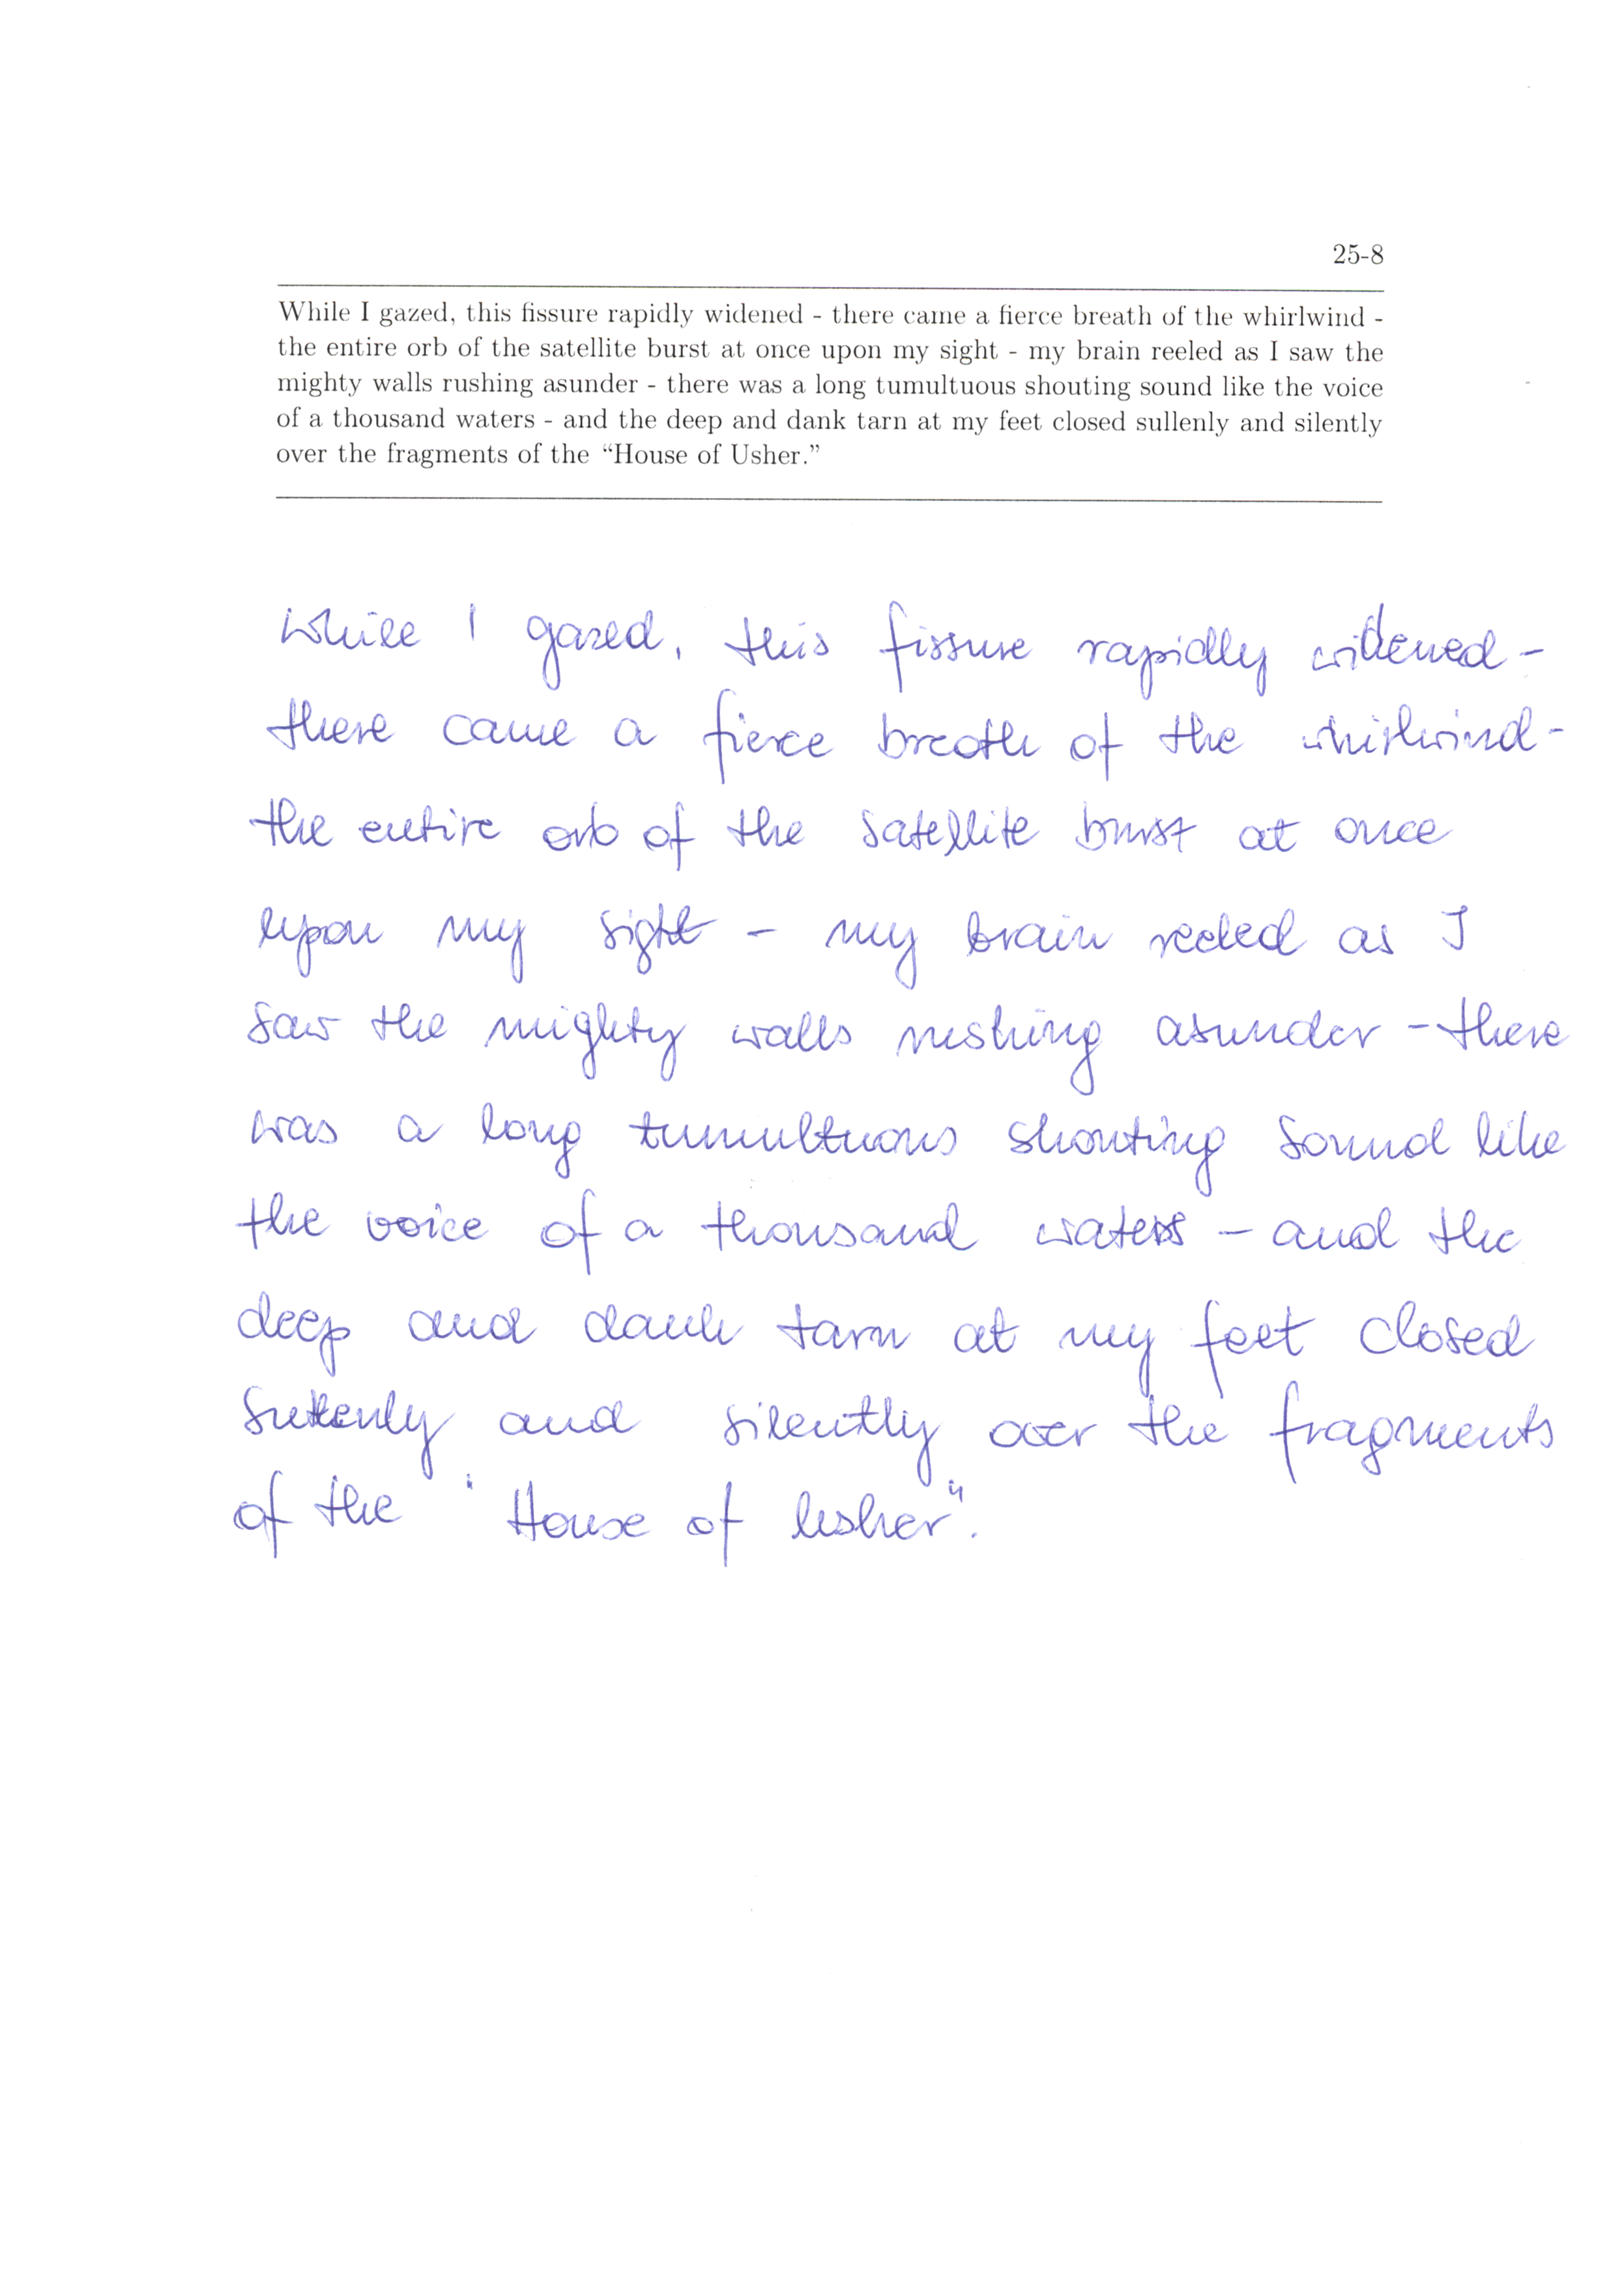 25-8
While I gazed, this fissure rapidly widened - there came a fierce breath of the whirlwind -
the entire orb of the satellite burst at once upon my sight - my brain reeled as I saw the
mighty walls rushing asunder - there was a long tumultuous shouting sound like the voice
of a thousand waters - and the deep and dank tarn at my feet closed sullenly and silently
over the fragments of the “House of Usher.”
While I gazed, this fissure rapidly widened -
there came a fierce breath of the whirlwind -
the entire orb of the satellite burst at once
upon my sight - my brain reeled as I
saw the mighty walls rushing asunder - there
was a long tumultuous shouting sound like
the voice of a thousand waters - and the
deep and dank tarn at my feet closed
sullenly and silently over the fragments
of the "House of Usher".